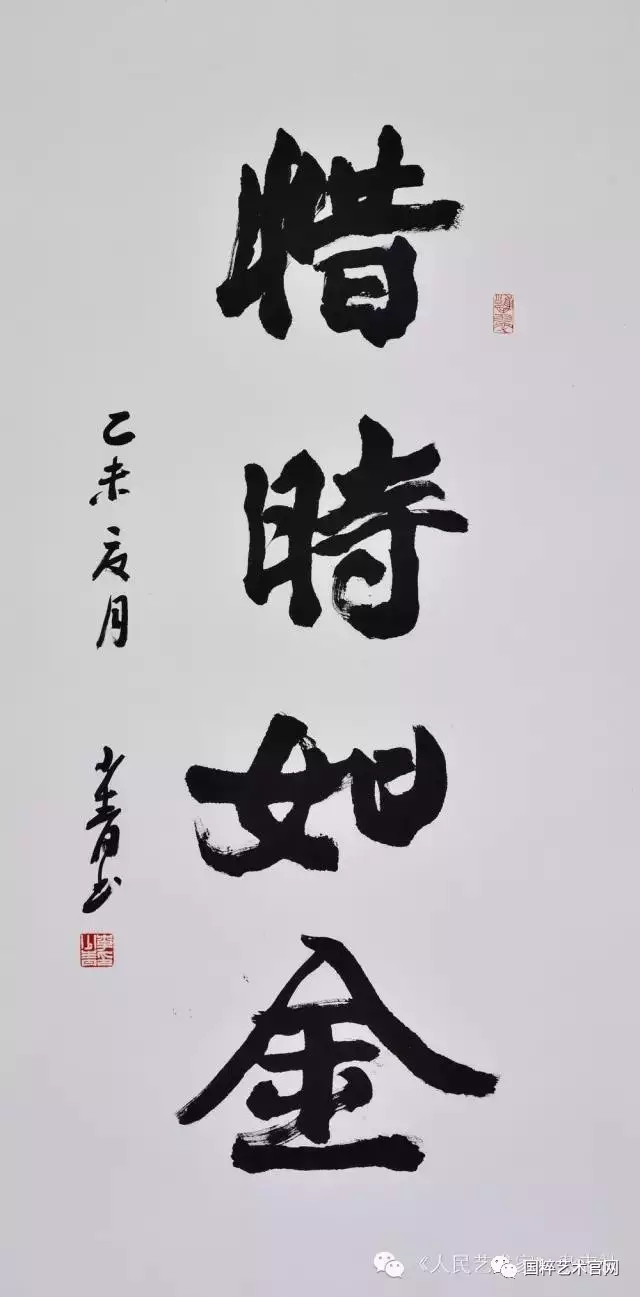 惜時如金
乙未夏月 少青书
《人民艺术家》
国粹艺术官网